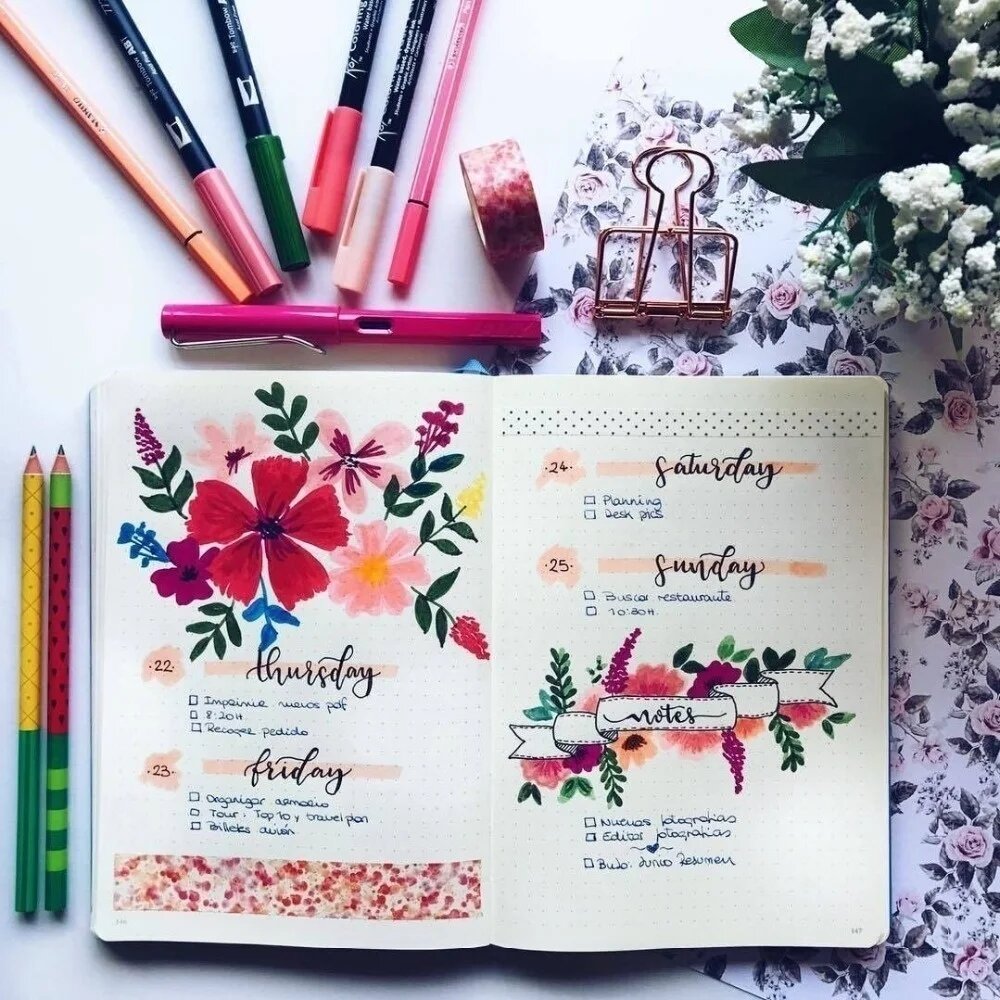 Tombow ABT
Tombow ABT
Koi Coloring
STABILO
·22· thursday
Imprimir nuevos pdf
8:20H
Recoger pedido
·23· friday
Organizar armario
Tour: Top 10 y travel plan
Billetes avión
146
·24· saturday
Planning
Desk pics
·25· sunday
Buscar restaurante
10:30H
notes
Nuevas fotografias
Editar fotografias
BuJo: Junio Resumen
147